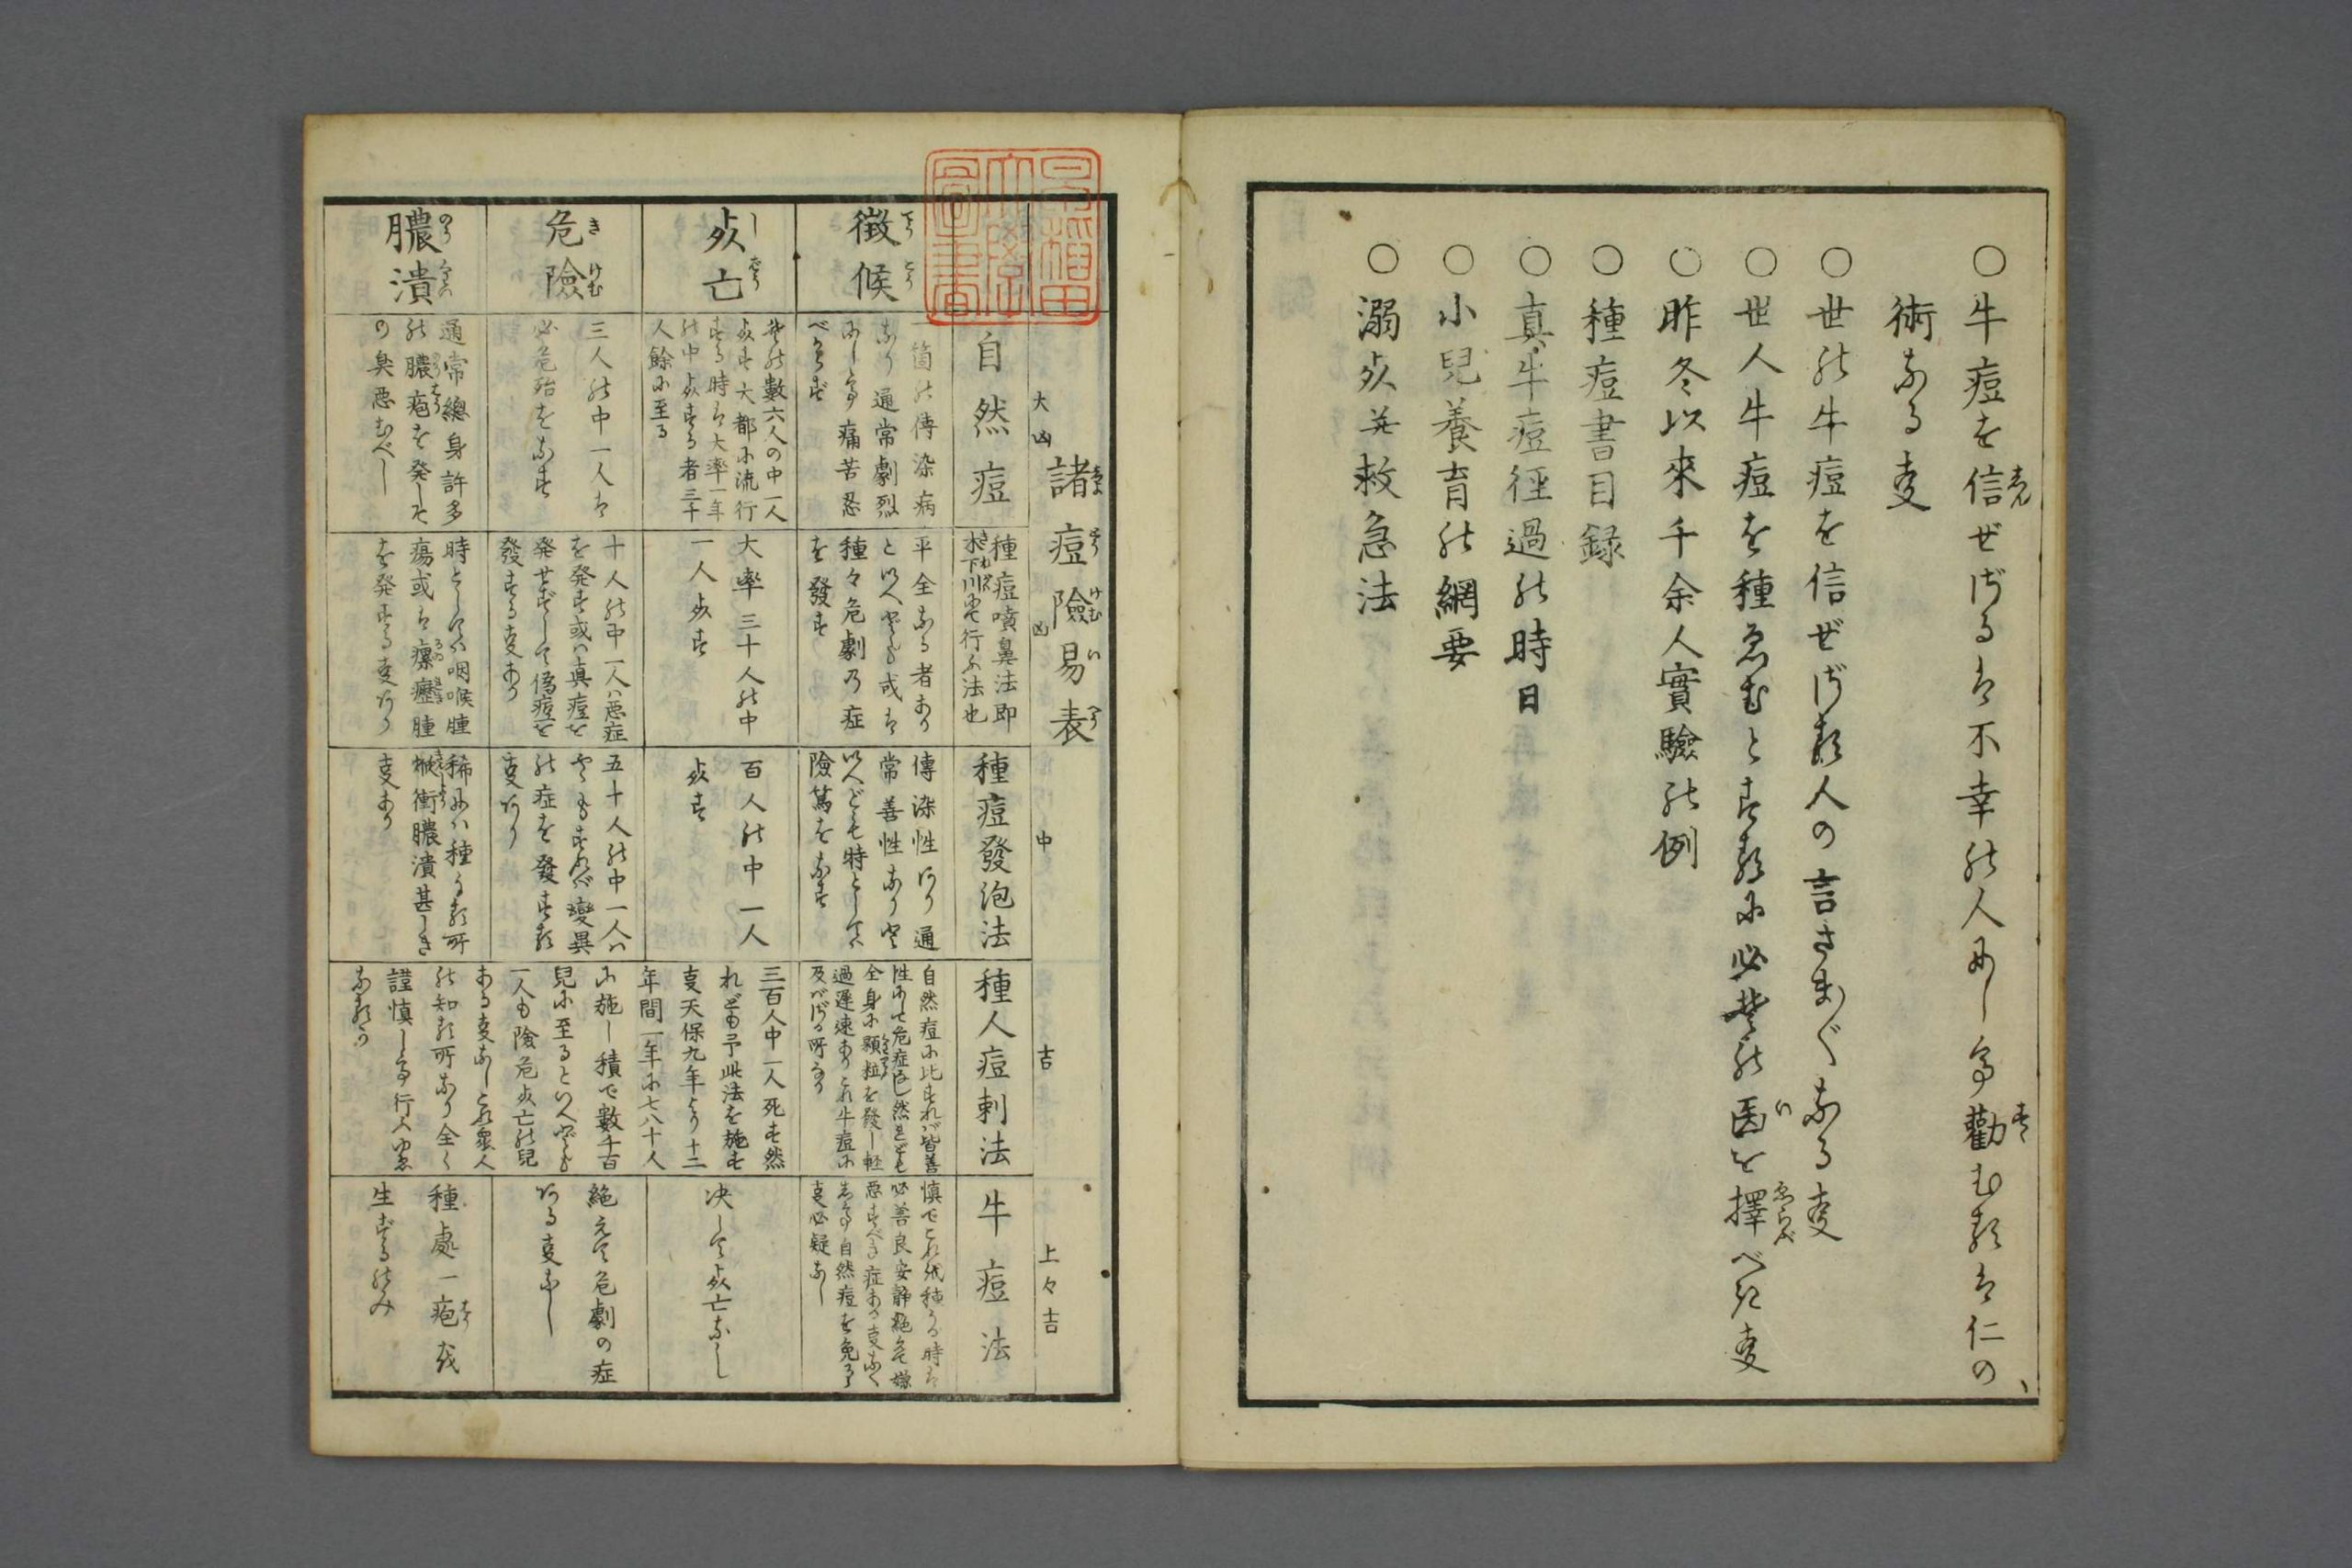 ○牛痘を信ぜざるは不幸の人にして勸むるは仁の
術なる叓
○世の牛痘を信ぜざる人の言さまぐなる叓
○世人牛痘を種ゑむとするに必其の医を擇べき叓
○昨冬以來千余人實驗の例
○種痘書目録
○真牛痘徑過の時日
○小兒養育の綱要
○溺死并救急法
諸痘險易表
大凶
凶
中
吉
上々吉
自然痘
種痘噴鼻法即
水下川ニて行ふ法也
種痘發泡法
種人痘刺法
牛痘法
早稲田
大學
圖書
徴候
一箇の傳染病
なり通常劇烈
にして痛苦忍
べからず
平全なる者あり
といへども或は
種々危劇の症
を發す
傳染性あり通
常善性なりと
いへども時として
險篤をなす
自然痘に比すれば皆善
性にして危症なし然れども
全身に顆粒を發し軽
過遅速ありこれ牛痘に
及ばざる所なり
慎でこれを種うる時は
必善良安静絶えて嫌
悪すべき症ある叓なく
して自然痘を免るゝ
叓必疑なし
死亡
其の數六人の中一人
死す大都に流行
する時は大率一年
の中死する者三千
人餘に至る
大率三十人の中
一人死す
百人の中一人
死す
三百人中一人死す然
れども予此法を施す
叓天保九年より十二
年間一年に七八十人
に施し積で數千百
兒に至るといへども
一人も險危死亡の兒
ある叓なしこれ衆人
の知る所なり全く
謹慎して行ふゆゑ
なるか
決して死亡なし
危險
三人の中一人は
必危殆をなす
十人の中一人ハ悪症
を発す或ハ真痘を
発せずして偽痘を
發する叓あり
五十人の中一人ハ
やゝもすれバ變異
の症を發する
叓あり
絶えて危劇の症
ある叓なし
膿潰
通常總身許多
の膿疱を発して
の臭悪むべし
時としてハ咽喉腫
瘍或は瘰癧腫
を発する叓あり
稀にハ種うる所
焮衝膿潰甚しき
叓あり
種處一疱を
生ずるのみ